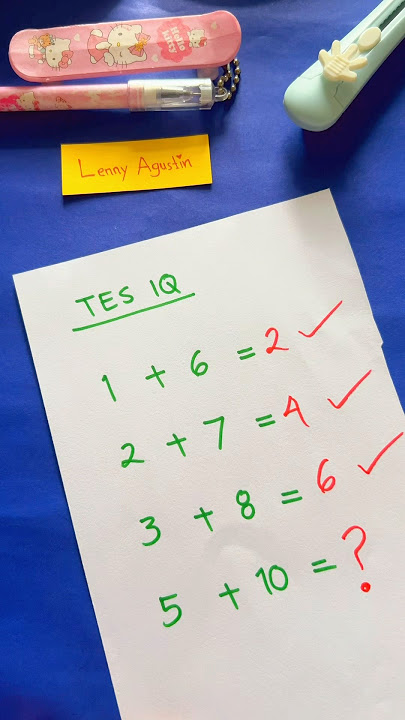 Hello Kitty
Lenny Agustin
TES IQ
1 + 6 = 2 ✓
2 + 7 = 4 ✓
3 + 8 = 6 ✓
5 + 10 = ?